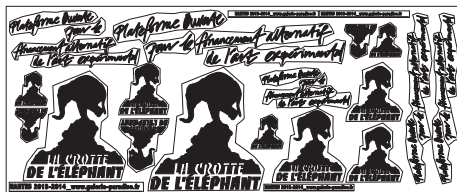 Plateforme Ouverte
pour le
financement alternatif
de l'art expérimental
Plateforme Ouverte
pour le
financement alternatif
de l'art expérimental
NANTES 2013-2014_www.galerie-paradise.fr
NANTES 2013-2014_www.galerie-paradise.fr
Plateforme Ouverte
pour le
financement alternatif
de l'art expérimental
LA CROTTE
DE L'ÉLÉPHANT
NANTES 2013-2014_www.galerie-paradise.fr
LA CROTTE
DE L'ÉLÉPHANT
LA CROTTE
DE L'ÉLÉPHANT
LA CROTTE
DE L'ÉLÉPHANT
NANTES 2013-2014_www.galerie-paradise.fr